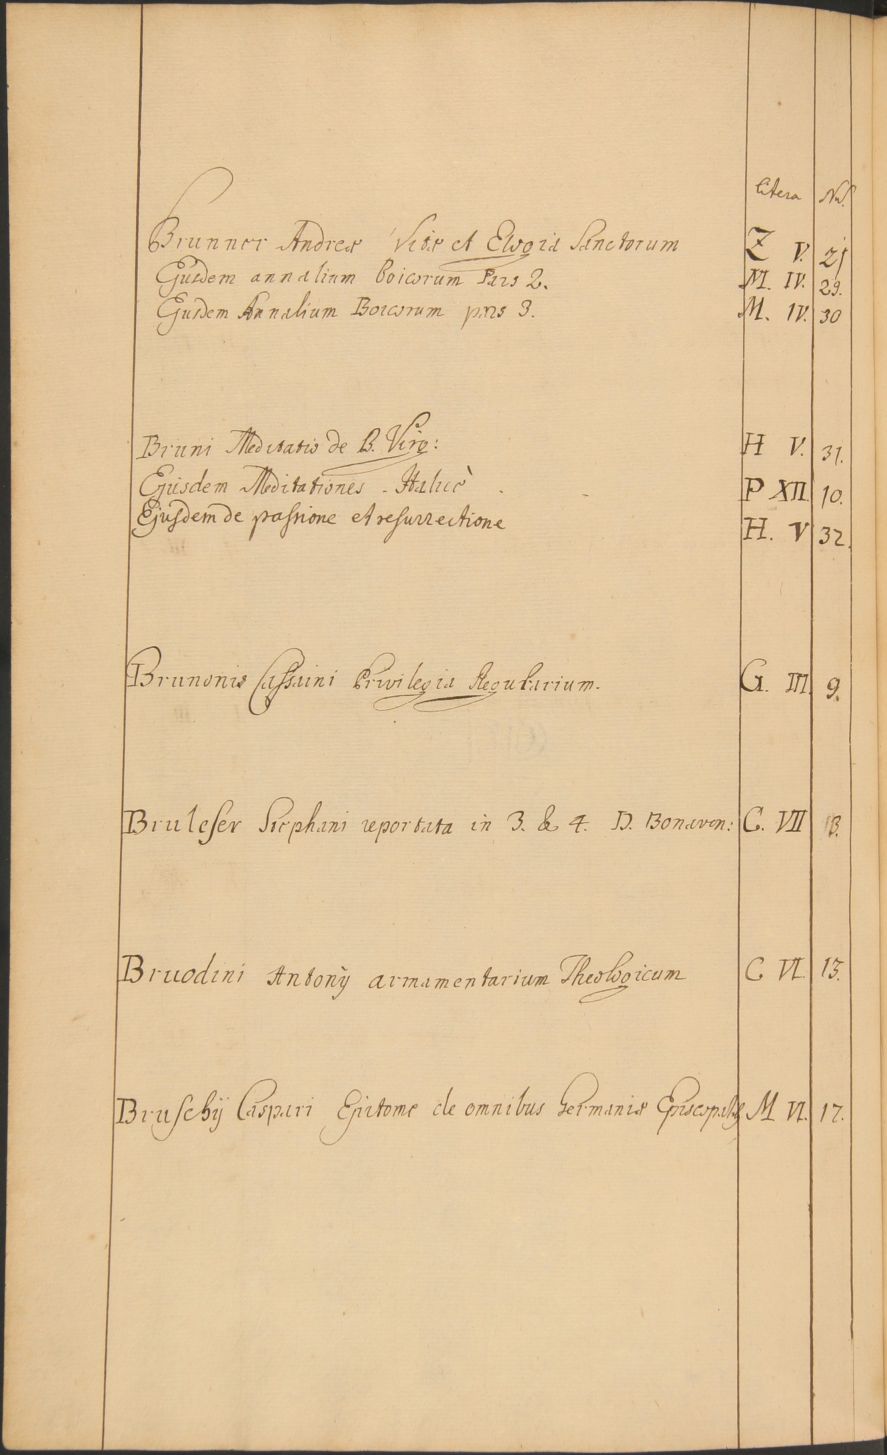 Litera Nus.
Brunner Andreæ Vitæ et Elogia Sanctorum Z V. 21
Ejusdem annalium boicorum Pars 2. M. IV. 29.
Ejusdem Annalium Boicorum pars 3. M. IV. 30
Bruni Meditatio de B. Virg: H V. 31.
Ejusdem Meditationes Italicè P XII. 10.
Ejusdem de passione et resurrectione H. V 32.
Brunonis Cassaini Privilegia Regularium. G. III. 9.
Bruleser Stephani reportata in 3. & 4. D. Bonaven: C. VII 13.
Bruodini Antonÿ armamentarium Theologicum C VI. 13.
Bruschÿ Caspari Epitome de omnibus Germaniæ M VI. 17.